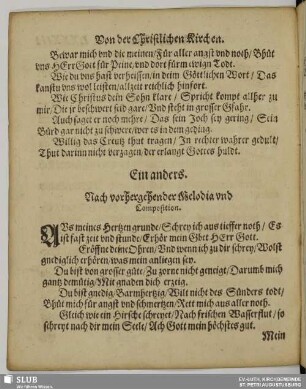 Von der Christlichen Kirchen.
Bewar mich vnd die meinen/ Für aller angst vnd noth/ Bhüt
vns HErr Gott für Peine/ vnd dort fürm ewign Todt.
Wie du vns hast verheissen/ in deim Göttlichen Wort/ Das
kanstu vns wol leisten/ allzeit reichlich hinfort.
Wie Christus dein Sohn klare/ Spricht kompt allher zu
mir/ Die jr beschwert seid gare/ Vnd steht in grosser Gfahr.
Auch saget er noch mehre/ Das sein Joch sey gering/ Sein
Bürd gar nicht zu schwere/ wer es in dem geding.
Willig das Creutz thut tragen/ In rechter wahrer gedult/
Thut darinn nicht verzagen/ der erlangt Gottes huldt.
Ein anders.
Nach vorhergehender Melodia vnd
Composition.
AVs meines Hertzen grunde/ Schrey ich aus tieffer noth/ Es
ist fast zeit vnd stunde/ Erhör mein Gbet HErr Gott.
Eröffne deine Ohren/ Wnd wenn ich zu dir schrey/ Wolst
gnediglich erhören/ was mein anliegen sey.
Du bist von grosser güte/ Zu zorne nicht geneigt/ Darumb mich
gantz demütig/ Mit gnaden dich erzeig.
Du bist gnedig/ Barmhertzig/ Wilt nicht des Sünders todt/
Bhüt mich für angst vnd schmertzen/ Rett mich aus aller noth.
Gleich wie ein Hirsche schreyet/ Nach frischen Wasserflut/ so
schreyt nach dir mein Seele/ Ach Gott mein höchstes gut.
Mein
SLUB
Wir führen Wissen.
EV.-LUTH. KIRCHGEMEINDE
ST. PETRI AUGUSTUSBURG